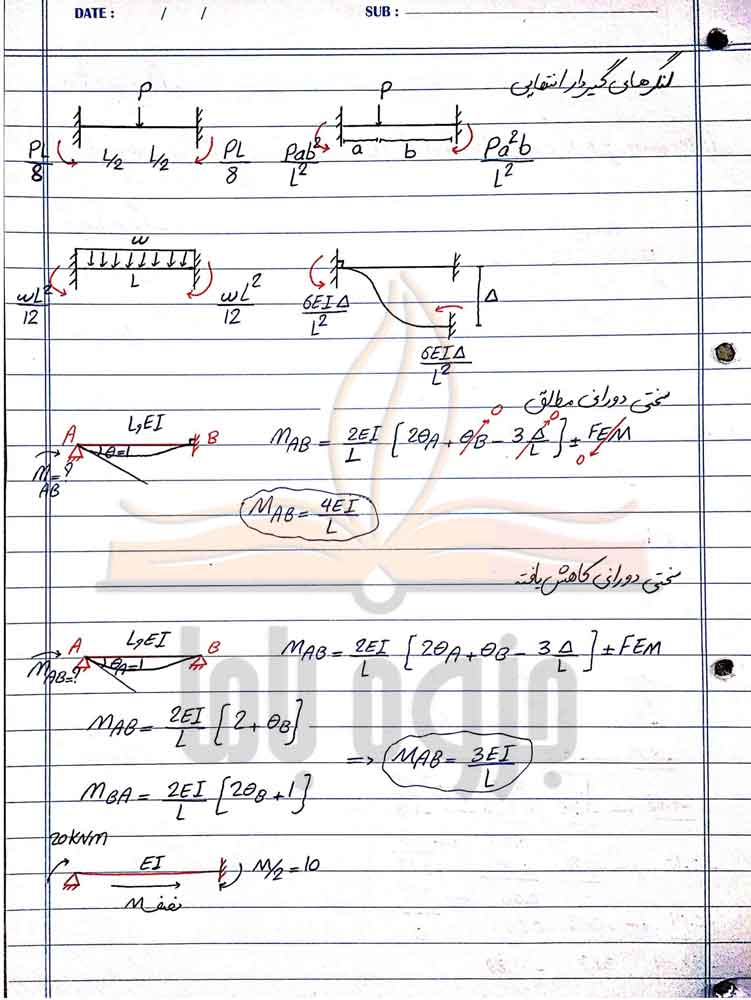 DATE : / / SUB :
لنگرهای گیردار انتهایی
P
PL/8 L/2 L/2 PL/8
P
Pab²/L² a b Pa²b/L²
w
wL²/12 L wL²/12
6EIΔ/L² Δ
6EIΔ/L²
سختی دورانی مطلق
A L,EI B
θ=1
M_AB=?
M_AB = 2EI/L [2θ_A + θ_B - 3Δ/L] ± FEM
0 0 0
M_AB = 4EI/L
سختی دورانی کاهش یافته
A L,EI B
θ_A=1
M_AB=?
M_AB = 2EI/L [2θ_A + θ_B - 3Δ/L] ± FEM
M_AB = 2EI/L [2 + θ_B]
⇒ M_AB = 3EI/L
M_BA = 2EI/L [2θ_B + 1]
20 KNM
EI M/2 = 10
نصف M
جزوه باما